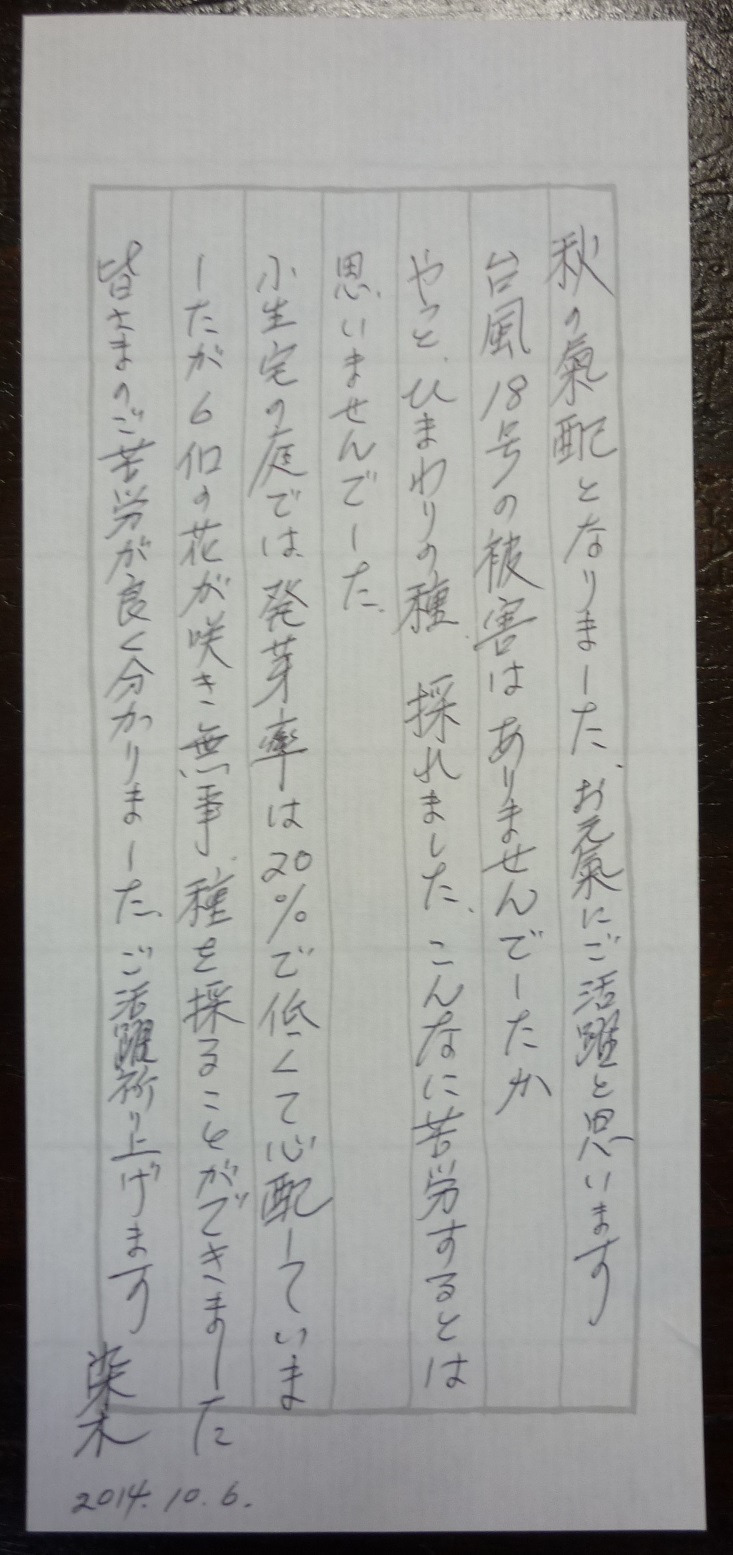 秋の氣配となりました、お元氣にご活躍と思います
台風18号の被害はありませんでしたか
やっと、ひまわりの種、採れました、こんなに苦労するとは
思いませんでした、
小生宅の庭では発芽率は20%で低くて心配していま
したが6個の花が咲き無事、種を採ることができました
皆さまのご苦労が良く分かりました、ご活躍祈り上げます
染木
2014.10.6.